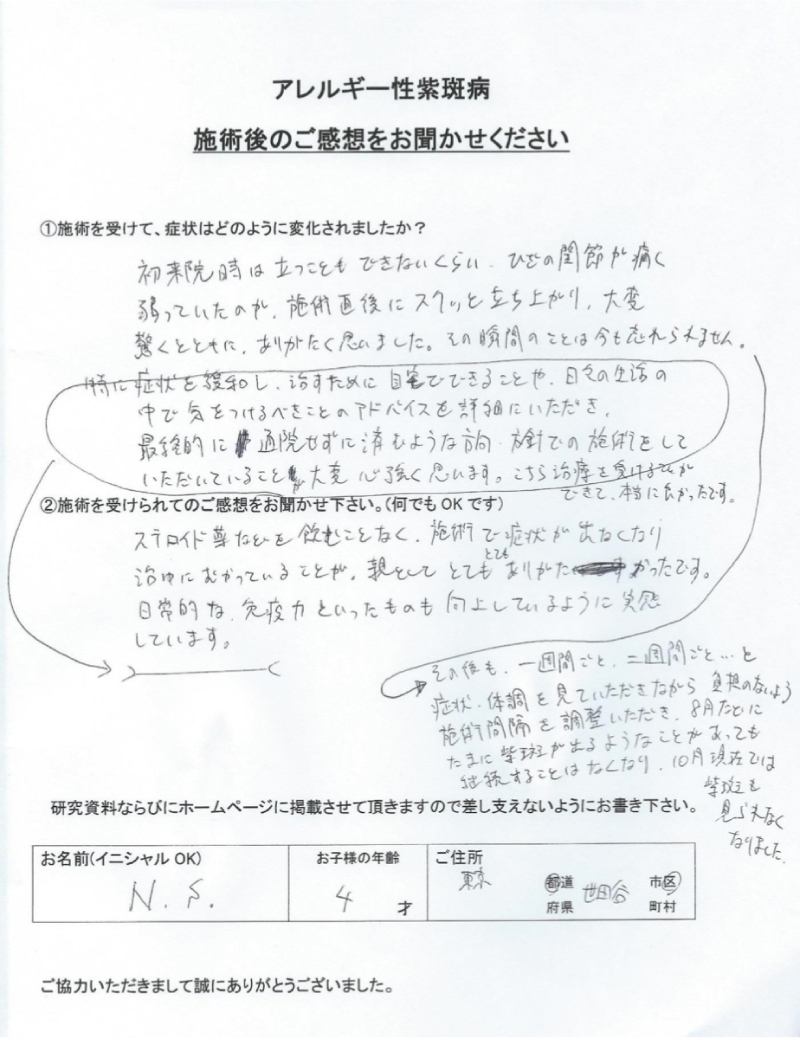 アレルギー性紫斑病
施術後のご感想をお聞かせください
①施術を受けて、症状はどのように変化されましたか？
初来院時は立つこともできないくらい、ひざの関節が痛く
弱っていたのが、施術直後にスクッと立ち上がり、大変
驚くとともに、ありがたく思いました。その瞬間のことは今も忘れられません。
特に症状を緩和し、治すために自宅でできることや、日々の生活の
中で気をつけるべきことのアドバイスを詳細にいただき、
最終的に通院せずに済むような方向・方針での施術をして
いただいていること大変心強く思います。こちら治療を受ける
できて、本当に良かったです。
②施術を受けられてのご感想をお聞かせ下さい。（何でもOKです）
ステロイド薬などを飲むことなく、施術で症状が出なくなり
治ゆにむかっていることが、親としてとてもありがたかったです。
日常的な、免疫力といったものも向上しているように実感
しています。
その後も、一週間ごと、二週間ごと…と
症状・体調を見ていただきながら負担のないよう
施術間隔を調整いただき、8月などに
たまに紫斑が出るようなことがあっても
継続することはなくなり、10月現在では
紫斑も
見られなく
なりました。
研究資料ならびにホームページに掲載させて頂きますので差し支えないようにお書き下さい。
お名前(イニシャルOK) お子様の年齢 ご住所
N.S. 4 才 東京 都道府県 世田谷 市区町村
ご協力いただきまして誠にありがとうございました。